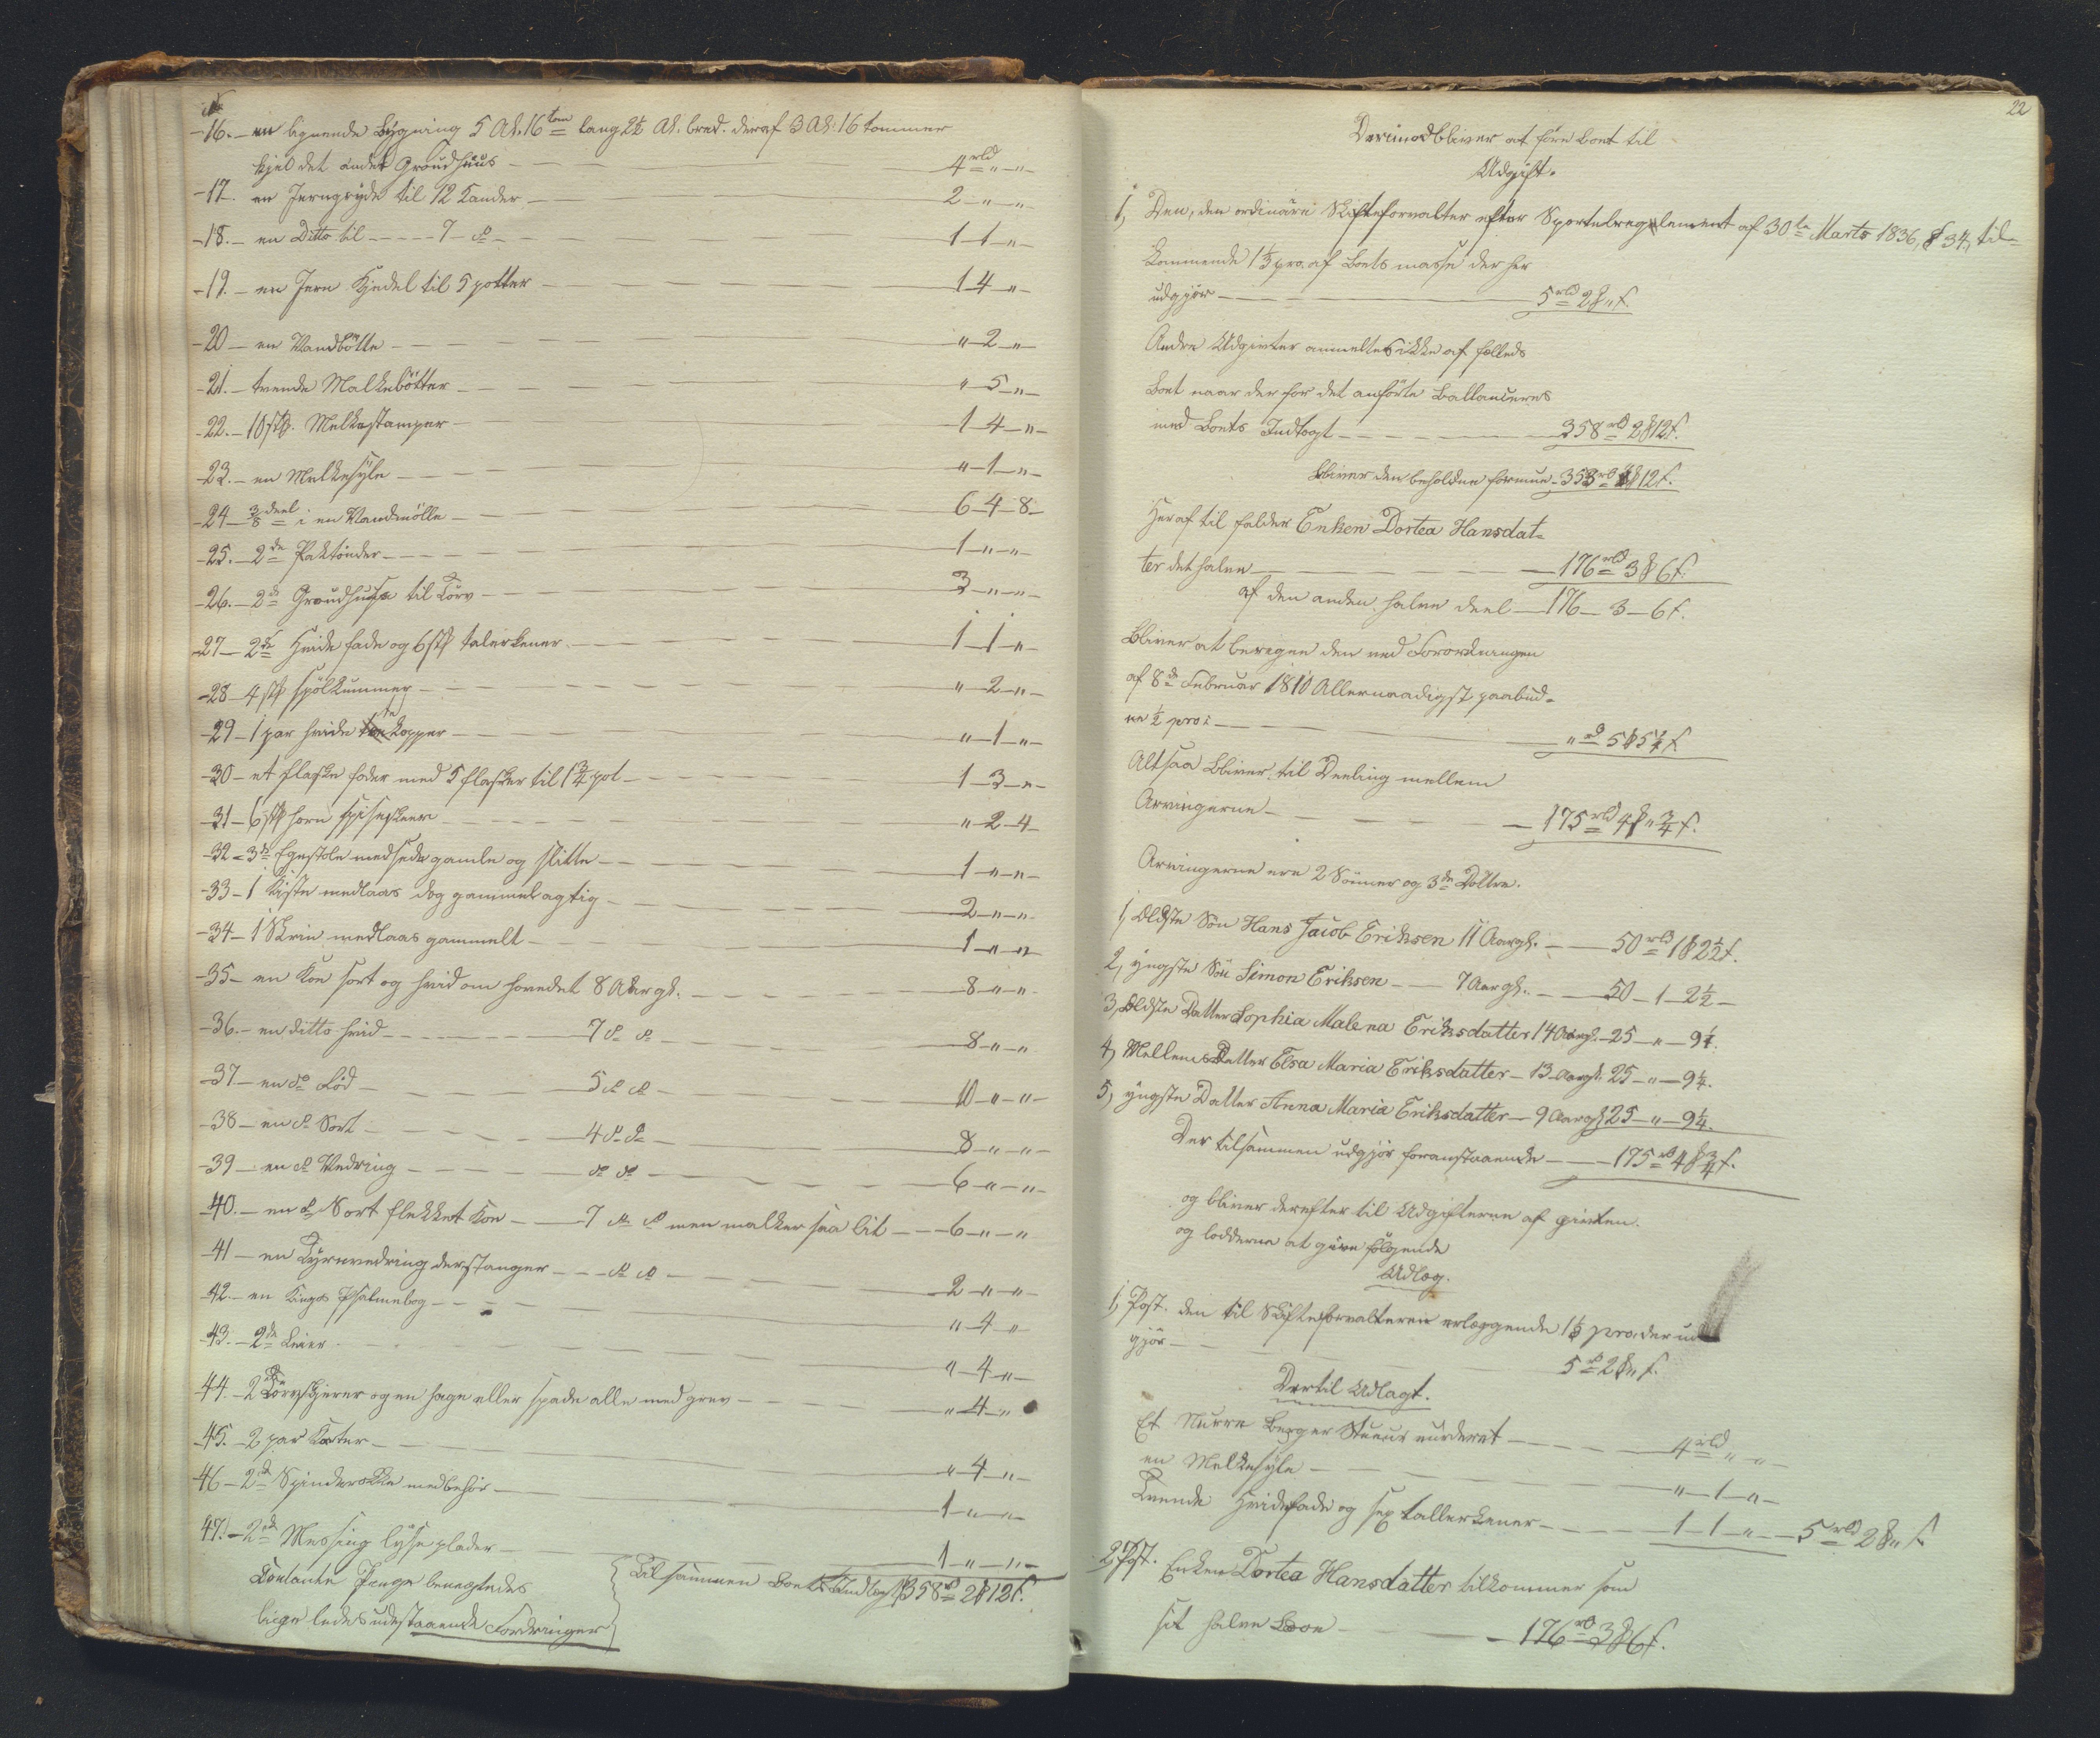 16. – en lignende Bygning 5 Al. 16 tom lang 2½ Al. bred. deraf 3 Al. 16 tommer
det andet Groudhuus – 4 rbd „ – „ –
– 17. en Jerngryde til 12 Kander – 2 – „ – „ –
– 18. – en Ditto til – 7 – do – 1 – 1 – „ –
– 19. – en Jern Kjedel til 5 potter – 1 – 4 – „ –
– 20 – en Vandbötte – „ – 2 – „ –
– 21. – tvende Malkebötter – „ – 5 – „ –
– 22. – 10 stk. Melkestamper – 1 – 4 – „ –
– 23. – en Melkesyle – „ – 1 – „ –
– 24 – 3/8 deel i en Vandmölle – 6 – 4 – 8 –
– 25. – 2de Paktönder – 1 – „ – „ –
– 26. – 2de Groudhuse til Törv – 3 – „ – „ –
– 27 – 2de Hvide fade og 6 stk talerkener – 1 – 1 – „ –
– 28 – 4 stk spölkummer – „ – 2 – „ –
– 29 – 1 par hvide te kopper – „ – 1 – „ –
– 30 – et flaske foder med 5 flasker til 1¾ pot – 1 – 3 – „ –
– 31 – 6 stk horn spiseskeer – „ – 2 – 4 –
– 32 – 3de Egestole med sede gamle og slitte – 1 – „ – „ –
– 33 – 1 Kiste med laas dog gammelagtig – 2 – „ – „ –
– 34 – 1 Skrin med laas gammelt – 1 – „ – „
– 35 – en Koe sort og hvid om hovedet 8 Aar gl. – 8 – „ – „
– 36. – en ditto hvid – 7 do do – 8 – „ – „
– 37 – en do Röd – 5 do do – 10 – „ – „ –
– 38 – en do Sort – 4 do do – 8 – „ – „ –
– 39 – en do Vedring – do do – 6 – „ – „ –
– 40. – en do Sort flekket Koe – 7 do do men malker saa lit – 6 – „ – „
– 41 – en Tyrevedring der stanger – do do – 2 – „ – „ –
42. – en Kingos Psalmebog – „ – 4 – „
– 43. – 2de Leier – „ – 4 – „ –
44. – 2de Törvskjerer og en hage eller spade alle med grev – „ – 4 – „
– 45. – 2 par Karter – „ – 4 – „ –
46 – 2de Spinderokke med behör – 1 – „ – „ –
47. – 2de Messing lyseplader – 1 – „ – „ –
Contante Penge benegtedes
lige ledes udestaaende Fordringer } Tilsammen Boets Indtægt 358 rbd 2 ß 12 f.
22
Derimod bliver at före Boet til
Udgift.
1, Den, den ordinäre Skifteforvalter efter Sportelreglement af 30te Marts 1836, § 34, til-
kommende 1⅓ pro. af Boets masse der her
udgjör – 5 rbd 2 ß „ f.
Andre Udgivter anmeltes ikke af felleds
Boet naar der for det anförte Ballanceres
med Boets Indtægt – 358 rbd 2 ß 12 f.
Bliver den beholdne formue – 353 rbd ß 12 f.
Heraf til falder Enken Dortea Hansdat-
ter det halve – 176 rbd 3 ß 6 f.
af den anden halve deel – 176 – 3 – 6 f.
Bliver at beregne den ved Forordningen
af 8de Februar 1810 Allernaadigst paabud-
ne ½ pro: – „ rbd 5 ß 5¼ f
Altsaa Bliver til Deeling mellem
Arvingerne – 175 rbd 4 ß „ ¾ f.
Arvingerne ere 2 Sönner og 3de Döttre.
1, Eldste Sön Hans Jacob Eriksen 11 Aar gl. – 50 rbd 1 ß 2½ f.
2, yngste Sön Simon Eriksen – 7 Aar gl. – 50 – 1 – 2½ –
3, Eldste Datter Sophia Malena Eriksdatter 14 Aar gl. – 25 – „ – 9¼.
4, Mellemste Datter Elsa Maria Eriksdatter – 13 Aar gl. 25 – „ – 9¼.
5, yngste Datter Anna Maria Eriksdatter – 9 Aar gl. 25 – „ – 9¼.
Der tilsammen udgjör foranstaaende – 175 rbd 4 ß ¾ f.
og bliver derefter til Udgifterne af
og lodderne at give fölgende
Udlæg.
1, Post. den til Skifteforvalteren erlæggende 1⅓ pro: der ud-
gjör – 5 rbd 2 ß „ f.
Dertil Udlagt.
Et Nurre Berger Stuuur vurderet – 4 rbd „ – „ –
en Melkesyle – „ – 1 – „ –
Tvende Hvidefade og sex tallerkener – 1 – 1 – „ – 5 rbd 2 ß „ f
2, Post. Enken Dortea Hansdatter tilkommer som
sit halve Boe – 176 rbd 3 ß 6 f.